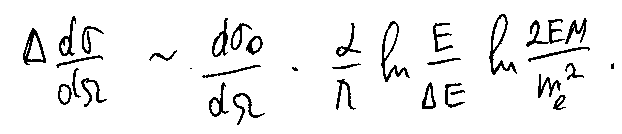 Δ dσ/dΩ ~ dσ₀/dΩ · α/π ln E/ΔE ln 2EM/mₑ² .